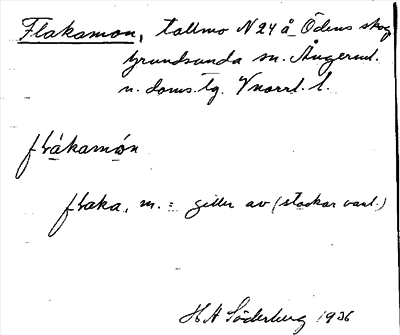 Flakamon, tallmo N 24 å Ödens skog
Grundsunda sn. Ångerml.
n. doms. tg. Vnorrl. l.
fɫákamón
fɫaka, m. = giller av (stockar vanl.)
H A Söderberg 1936